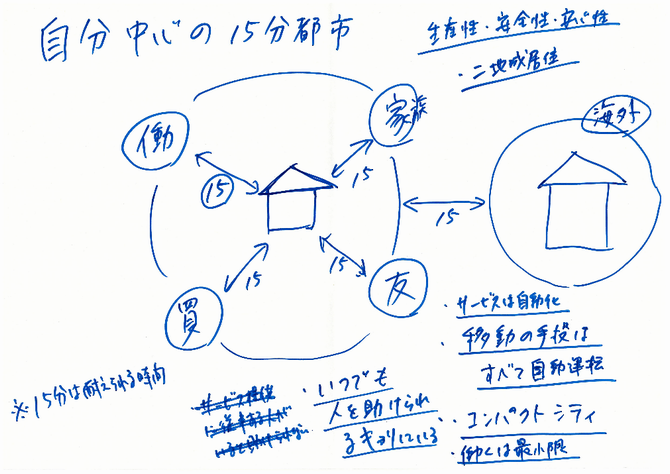 自分中心の15分都市
生産性・安全性・安心性
・二地域居住
働
家族
海外
15
15
15
15
15
買
友
・サービスは自動化
・移動の手段は
すべて自動運転
・コンパクトシティ
・働くは最小限
・いつでも
人を助けられ
るキョリにいる
※15分は耐えられる時間